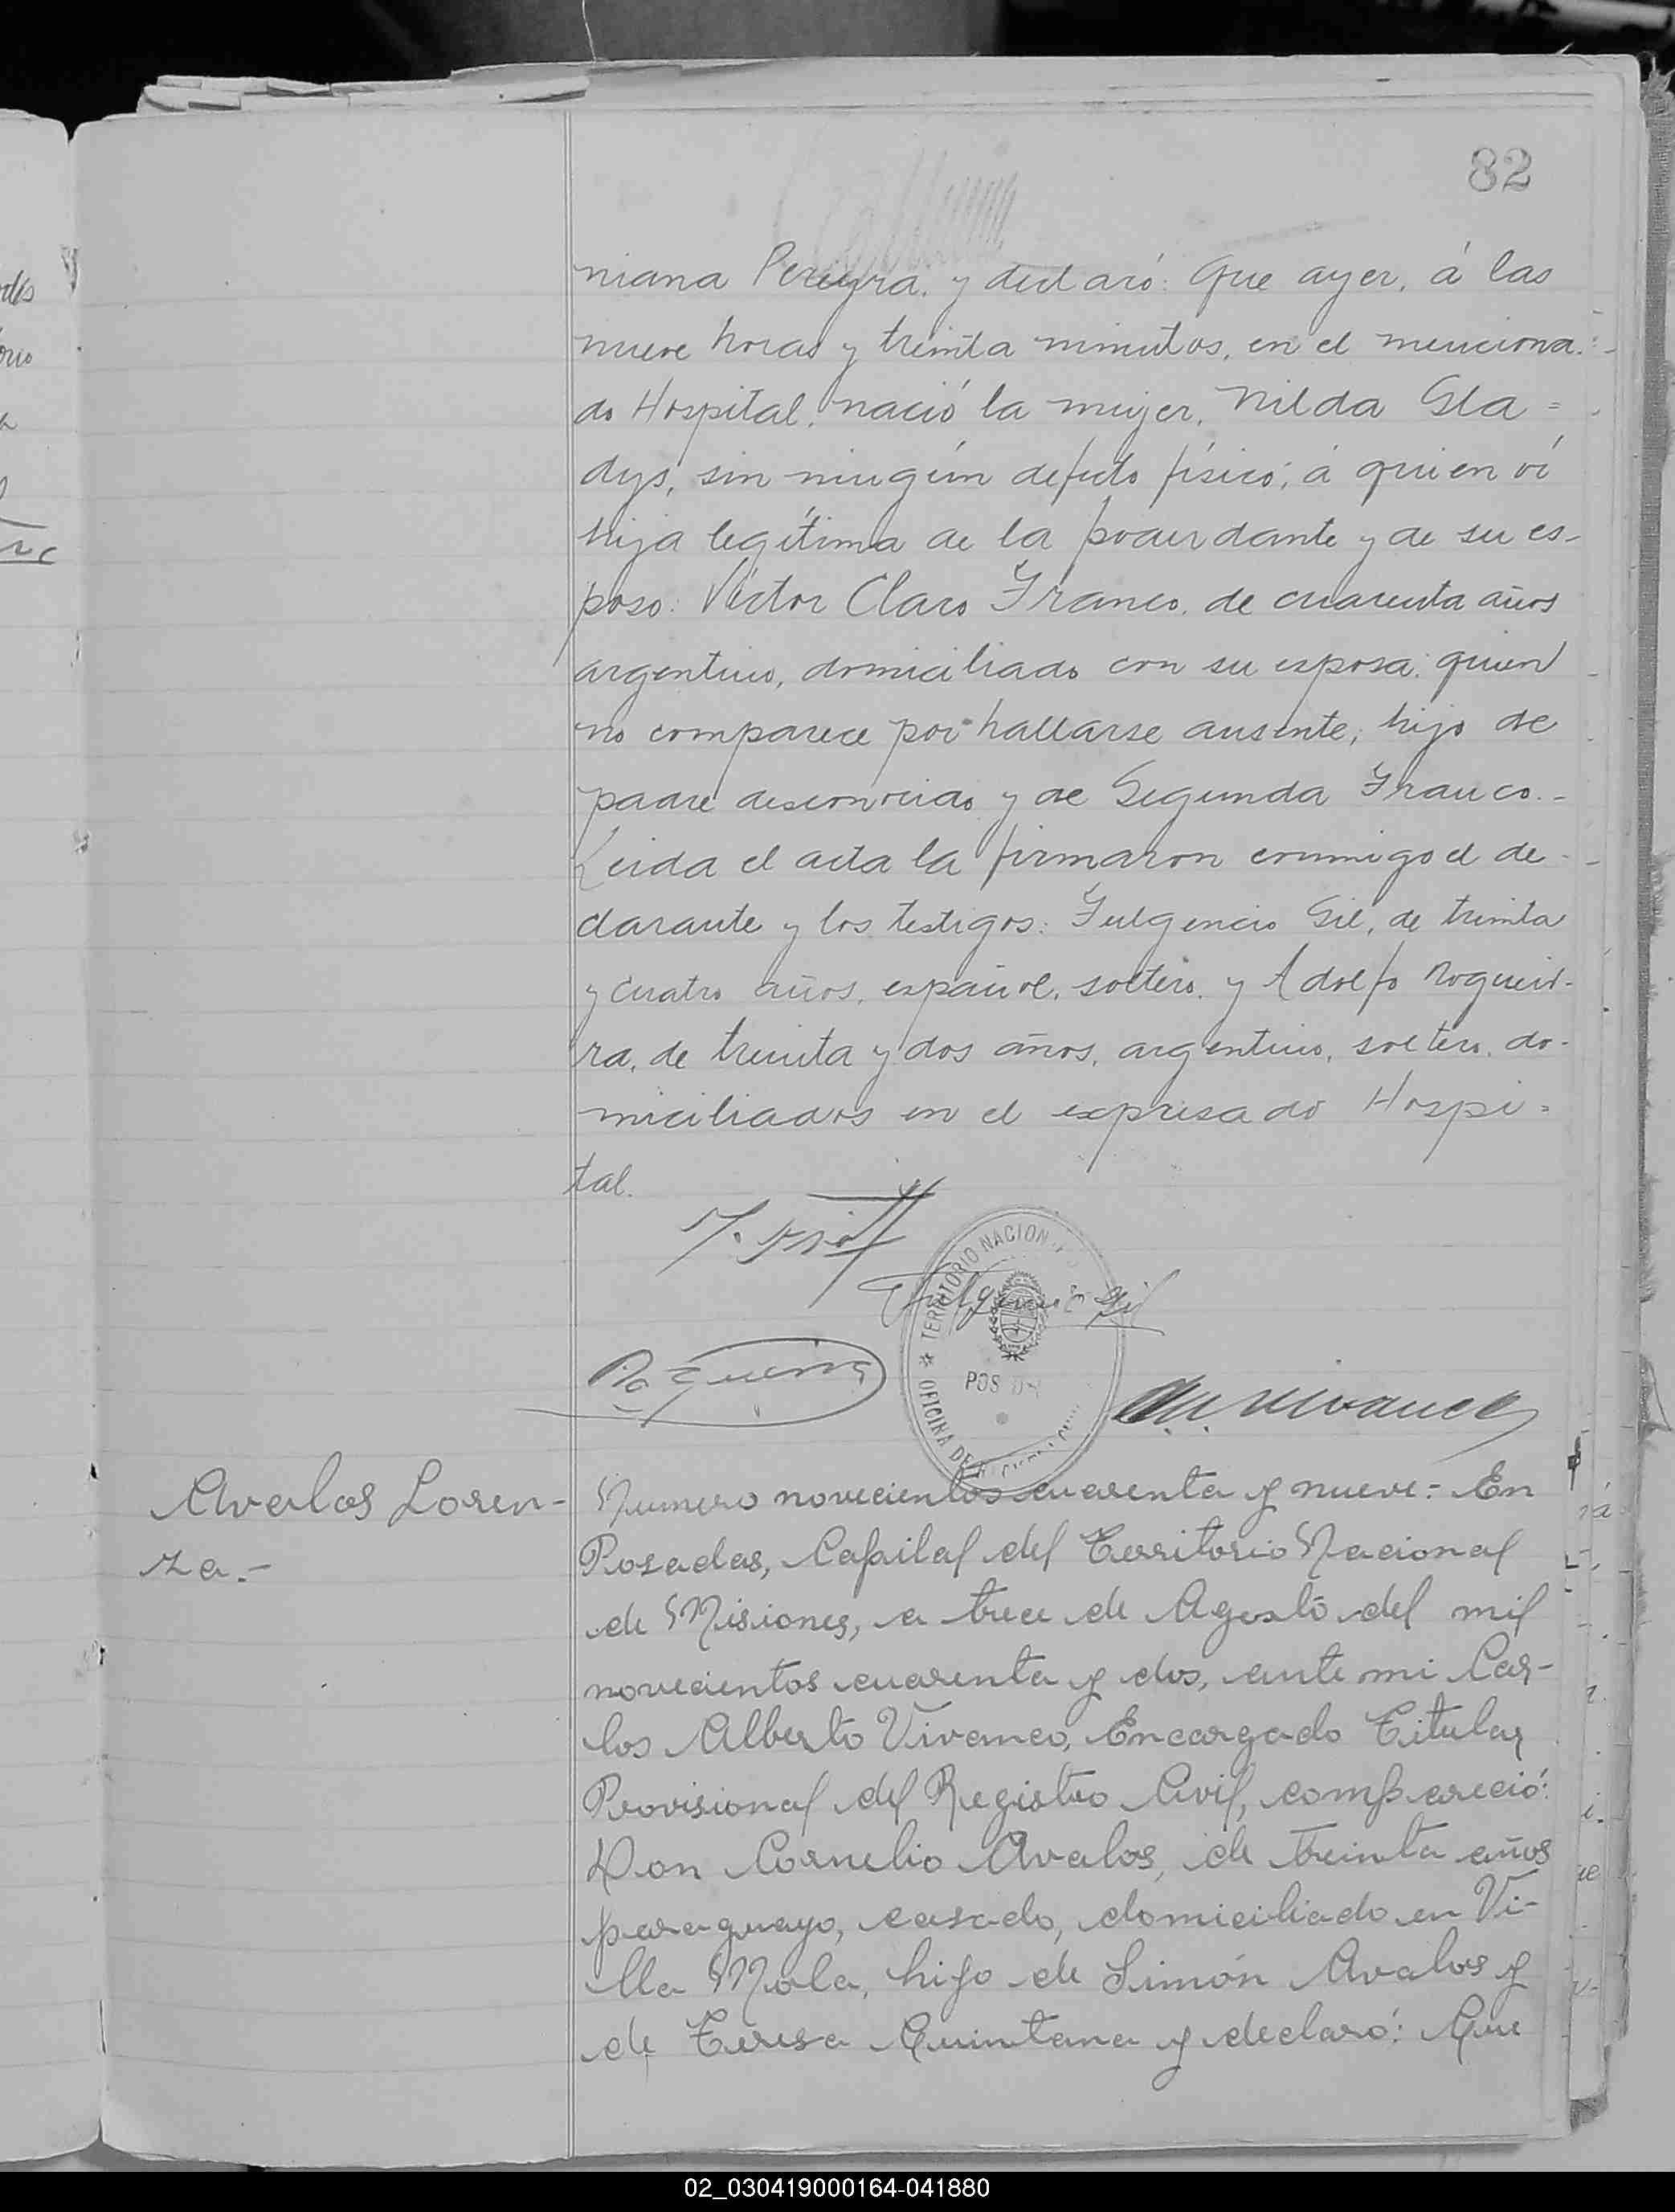 82
niana Pereyra. y declaró: Que ayer, á las
nueve horas y treinta minutos, en el menciona-
do Hospital, nació la mujer, Nilda Gla=
dys, sin ningún defecto físico; á quien ví
hija legítima de la poderdante y de su es-
poso: Víctor Claro Franco, de cuarenta años
argentino, domiciliado con su esposa; quien
no comparece por hallarse ausente; hijo de
padre desconocido y de Segunda Franco.-
Leida el acta la firmaron conmigo el de-
clarante y los testigos: Fulgencio Gil, de treinta
y cuatro años, español, soltero, y Adolfo Noguei-
ra, de treinta y dos años, argentino, soltero, do-
miciliados en el expresado Hospi=
tal.
Fulgencio Gil
TERRITORIO NACION
POS
OFICINA DE
Avalos Loren-
za.-
Numero novecientos cuarenta y nueve:- En
Posadas, Capital del Territorio Nacional
de Misiones, a trece de Agosto del mil
novecientos cuarenta y dos, ante mi Car-
los Alberto Vivanco, Encargado Titular
Provisional del Registro Civil, compareció:
Don Cornelio Avalos, de treinta años
paraguayo, casado, domiciliado en Vi-
lla Mola, hijo de Simón Avalos y
de Teresa Quintana y declaró: Que
02_030419000164-041880